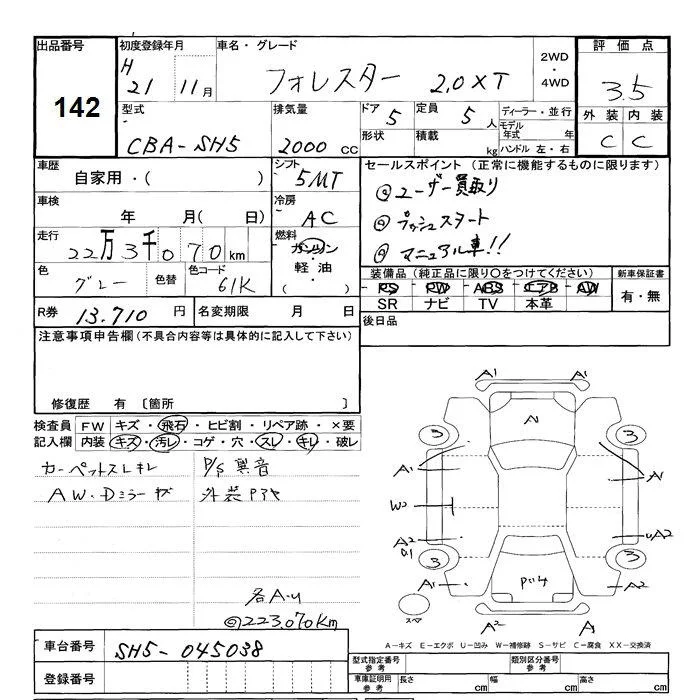 出品番号 初度登録年月 車名・グレード 2WD・4WD 評価点
142 H 21 11月 フォレスター 2.0XT 3.5
型式 排気量 ドア 5 定員 5人 ディーラー・並行 外装 内装
CBA-SH5 2000cc 形状 積載 kg モデル年式 年 ハンドル 左・右 C C
車歴 シフト セールスポイント(正常に機能するものに限ります)
自家用・( ) 5MT @ユーザー買取り
車検 年 月( 日) 冷房 AC @プッシュスタート
走行 22万3千070km 燃料 ガソリン・軽油・( ) @マニュアル車!!
色 グレー 色替 色コード 61K 装備品(純正品に限り○をつけてください) 新車保証書
PS PW ABS エアB AW 有・無
SR ナビ TV 本革
R券 13.710円 名変期限 月 日 後日品
注意事項申告欄(不具合内容等は具体的に記入して下さい)
修復歴 有〔箇所 〕
検査員 FW キズ・飛石・ヒビ割・リペア跡・×要
記入欄 内装 キズ・汚レ・コゲ・穴・スレ・キレ・破レ
カーペットスレキレ P/S異音
AW・Dミラーキズ 外装
各A・U
@223,070km
A1 A1
A
3 3
A1 A
W2
A2 0.1 uA2
3 3
A1 A2
スペア
A2 A
A-キズ E-エクボ U-凹み W-補修跡 S-サビ C-腐食 XX-交換済
車台番号 SH5-045038
型式指定番号 参考 類別区分番号 参考
登録番号 車庫証明用 参考 長さ cm 幅 cm 高さ cm